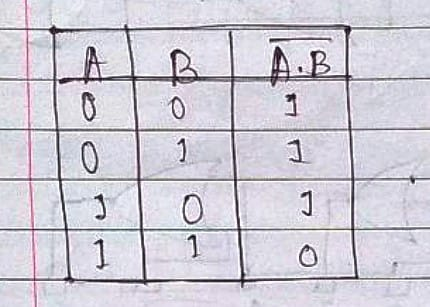 A B A̅.̅B̅
0 0 1
0 1 1
1 0 1
1 1 0